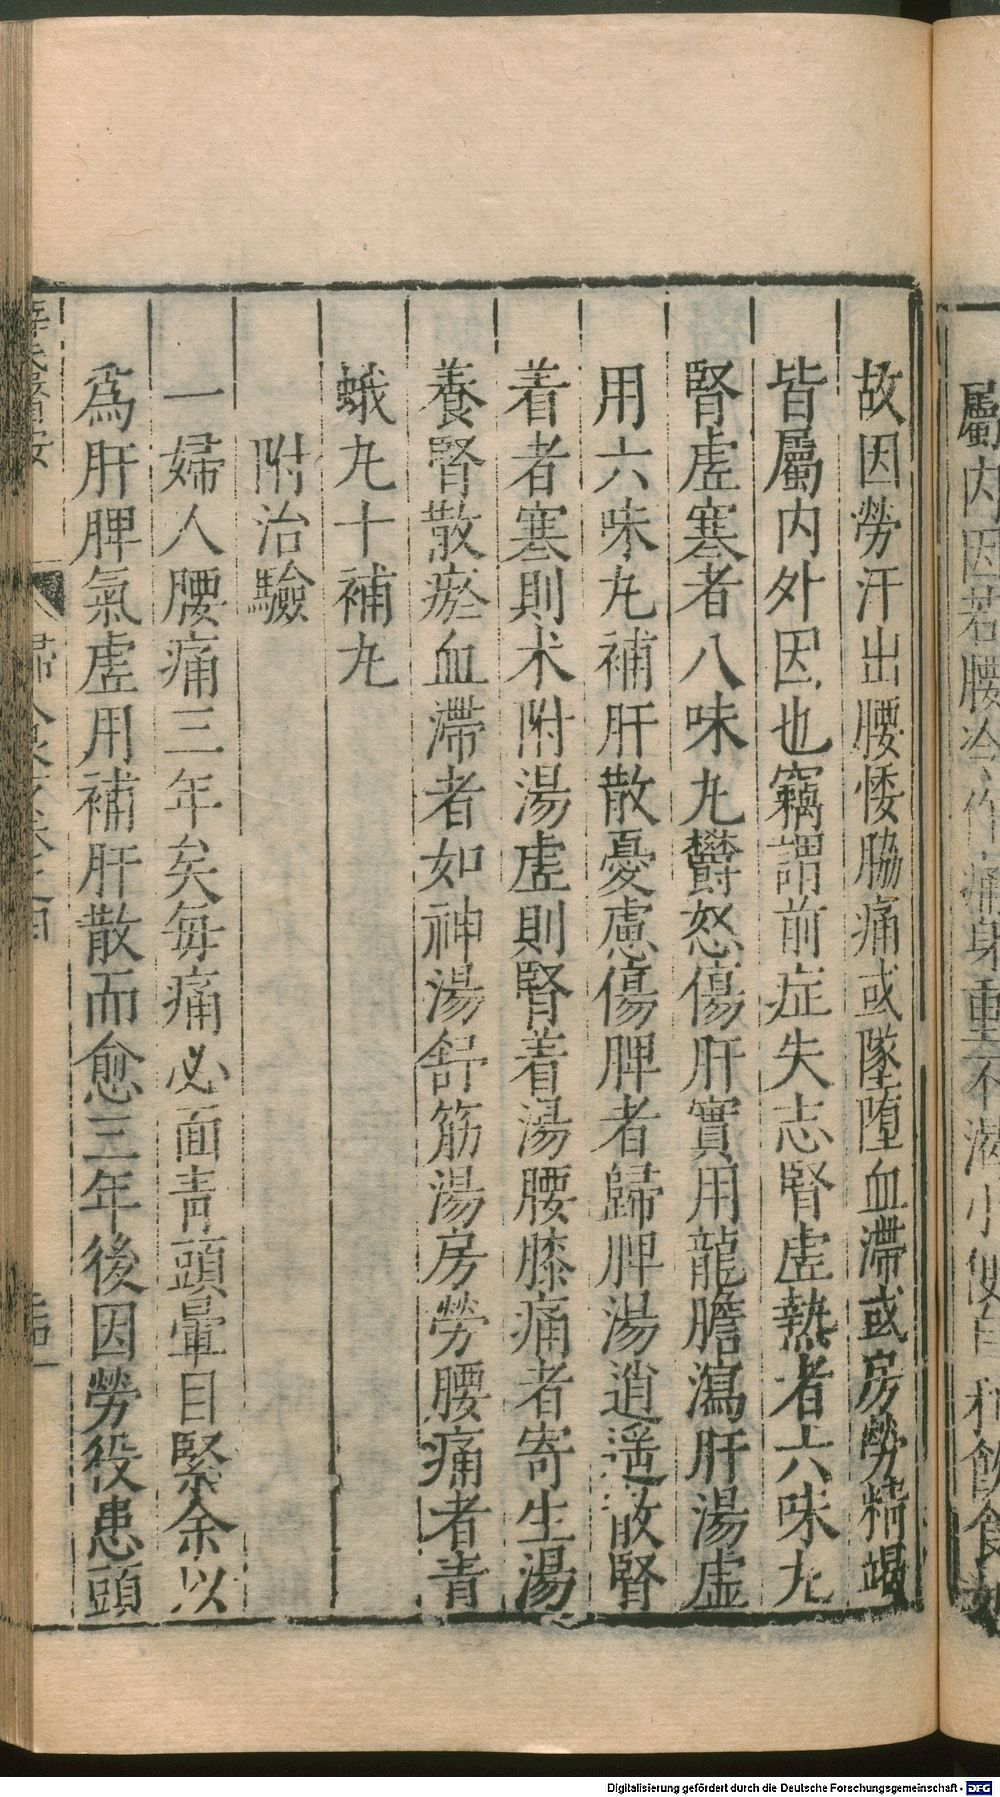 屬內因若腰冷作痛身重不渴小便自利飲食如
故因勞汗出腰悽脇痛或墜墮血滯或房勞精竭
皆屬內外因也竊謂前症失志腎虛熱者六味丸
腎虛寒者八味丸欝怒傷肝實用龍膽瀉肝湯虛
用六味丸補肝散憂慮傷脾者歸脾湯逍遥散腎
着者寒則术附湯虛則腎着湯腰膝痛者寄生湯
養腎散瘀血滯者如神湯舒筋湯房勞腰痛者青
蛾丸十補丸
附治驗
一婦人腰痛三年矣每痛必面青頭暈目緊余以
為肝脾氣虛用補肝散而愈三年後因勞役患頭
Digitalisierung gefördert durch die Deutsche Forschungsgemeinschaft - DFG